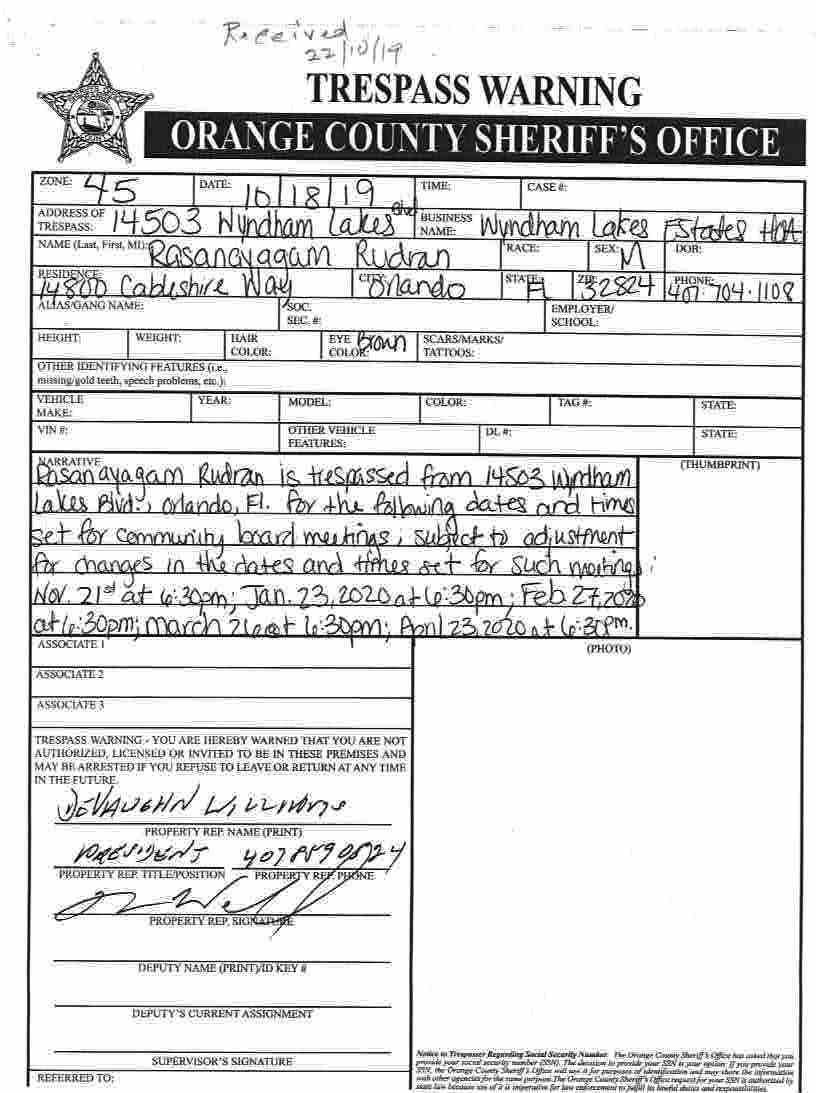 Received
22/10/19
TRESPASS WARNING
ORANGE COUNTY SHERIFF'S OFFICE
ZONE: 45 DATE: 10/18/19 TIME: CASE #:
ADDRESS OF TRESPASS: 14503 Wyndham Lakes Blvd BUSINESS NAME: Wyndham Lakes Estates HOA
NAME (Last, First, MI): Rasanayagam Rudran RACE: SEX: M DOB:
RESIDENCE: 14800 Cableshire Way CITY: Orlando STATE: Fl ZIP: 32824 PHONE: 407.704.1108
ALIAS/GANG NAME: SOC. SEC. #: EMPLOYER/ SCHOOL:
HEIGHT: WEIGHT: HAIR COLOR: EYE COLOR: Brown SCARS/MARKS/ TATTOOS:
OTHER IDENTIFYING FEATURES (i.e.,
missing/gold teeth, speech problems, etc.):
VEHICLE MAKE: YEAR: MODEL: COLOR: TAG #: STATE:
VIN #: OTHER VEHICLE FEATURES: DL #: STATE:
NARRATIVE (THUMBPRINT)
Rasanayagam Rudran is trespassed from 14503 Wyndham
Lakes Blvd., Orlando, Fl. for the following dates and times
set for community board meetings, subject to adjustment
for changes in the dates and times set for such meetings:
Nov. 21st at 6:30pm; Jan. 23, 2020 at 6:30pm; Feb 27, 2020
at 6:30pm; march 26 at 6:30pm; April 23, 2020 at 6:30pm.
ASSOCIATE 1 (PHOTO)
ASSOCIATE 2
ASSOCIATE 3
TRESPASS WARNING - YOU ARE HEREBY WARNED THAT YOU ARE NOT
AUTHORIZED, LICENSED OR INVITED TO BE IN THESE PREMISES AND
MAY BE ARRESTED IF YOU REFUSE TO LEAVE OR RETURN AT ANY TIME
IN THE FUTURE.
DEVAUGHN WILLIAMS
PROPERTY REP. NAME (PRINT)
PRESIDENT
PROPERTY REP. TITLE/POSITION PROPERTY REP. PHONE
PROPERTY REP. SIGNATURE
DEPUTY NAME (PRINT)/ID KEY #
DEPUTY'S CURRENT ASSIGNMENT
SUPERVISOR'S SIGNATURE
REFERRED TO:
Notice to Trespasser Regarding Social Security Number: The Orange County Sheriff's Office has asked that you
provide your social security number (SSN). The decision to provide your SSN is your option. If you provide your
SSN, the Orange County Sheriff's Office will use it for purposes of identification and may share the information
with other agencies for the same purpose. The Orange County Sheriff's Office request for your SSN is authorized by
state law because use of it is imperative for law enforcement to fulfill its lawful duties and responsibilities.